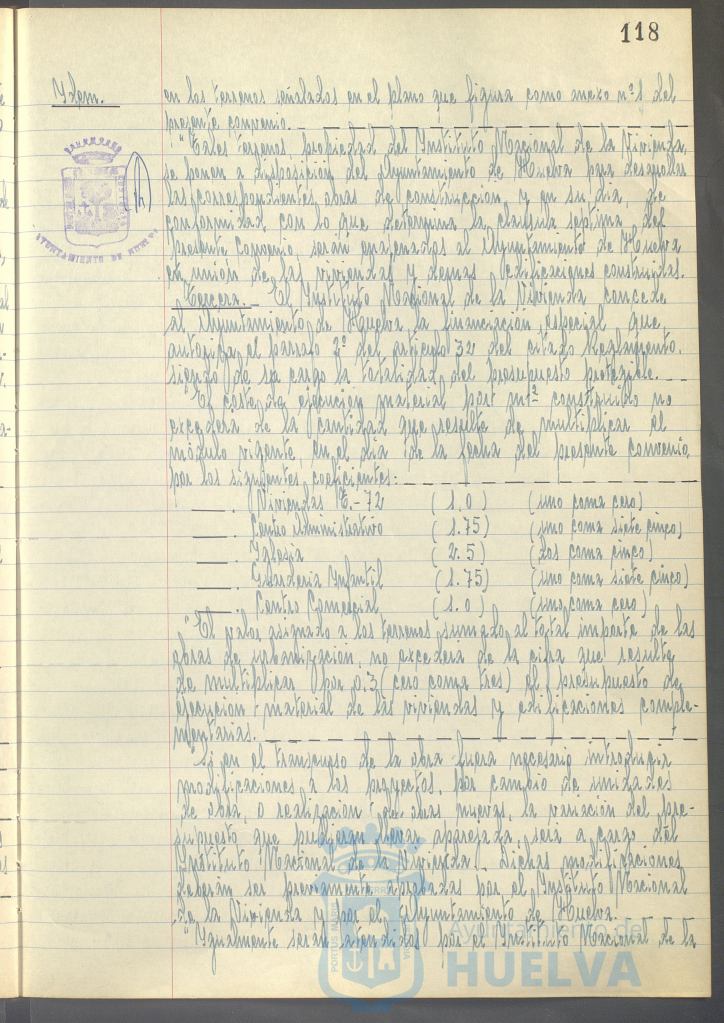 118
Idem.
en los terrenos señalados en el plano que figura como anexo nº 1 del
presente convenio.
"Tales terrenos, propiedad del Instituto Nacional de la Vivienda,
se ponen a disposición del Ayuntamiento de Huelva para desarrollar
las correspondientes obras de construcción y en su día, de
conformidad con lo que determina la clausula septima del
presente Convenio, serán enajenados al Ayuntamiento de Huelva
en unión de las viviendas y demas edificaciones construidas.
Tercera.- El Instituto Nacional de la Vivienda concede
al Ayuntamiento de Huelva la financiación especial que
autoriza el parrafo 2º del articulo 32 del citado Reglamento,
siendo de su cargo la totalidad del presupuesto protegible.
El coste de ejecución material por mt² construido no
excederá de la cantidad que resulte de multiplicar el
módulo vigente, en el día de la fecha del presente convenio,
por los siguientes coeficientes:
Viviendas T.-72 (1.0) (uno coma cero)
Centro Administrativo (1.75) (uno coma siete cinco)
Iglesia (2.5) (dos coma cinco)
Guarderia Infantil (1.75) (uno coma siete cinco)
Centro Comercial (1.0) (uno coma cero)
"El valor asignado a los terrenos, sumado al total importe de las
obras de urbanización, no excederá de la cifra que resulte
de multiplicar por 0.3 (cero coma tres) el presupuesto de
ejecución material de las viviendas y edificaciones comple-
mentarias.
"Si en el transcurso de la obra fuera necesario introducir
modificaciones a los proyectos, por cambio de unidades
de obra, o realización de obras nuevas, la variación del pre-
supuesto que pudieran llevar aparejada, será a cargo del
Instituto Nacional de la Vivienda. Dichas modificaciones
deberán ser previamente aprobadas por el Instituto Nacional
de la Vivienda y por el Ayuntamiento de Huelva.
"Igualmente serán atendidos por el Instituto Nacional de la
AYUNTAMIENTO DE HUELVA
PORTUS MARIS
Ayuntamiento de
HUELVA